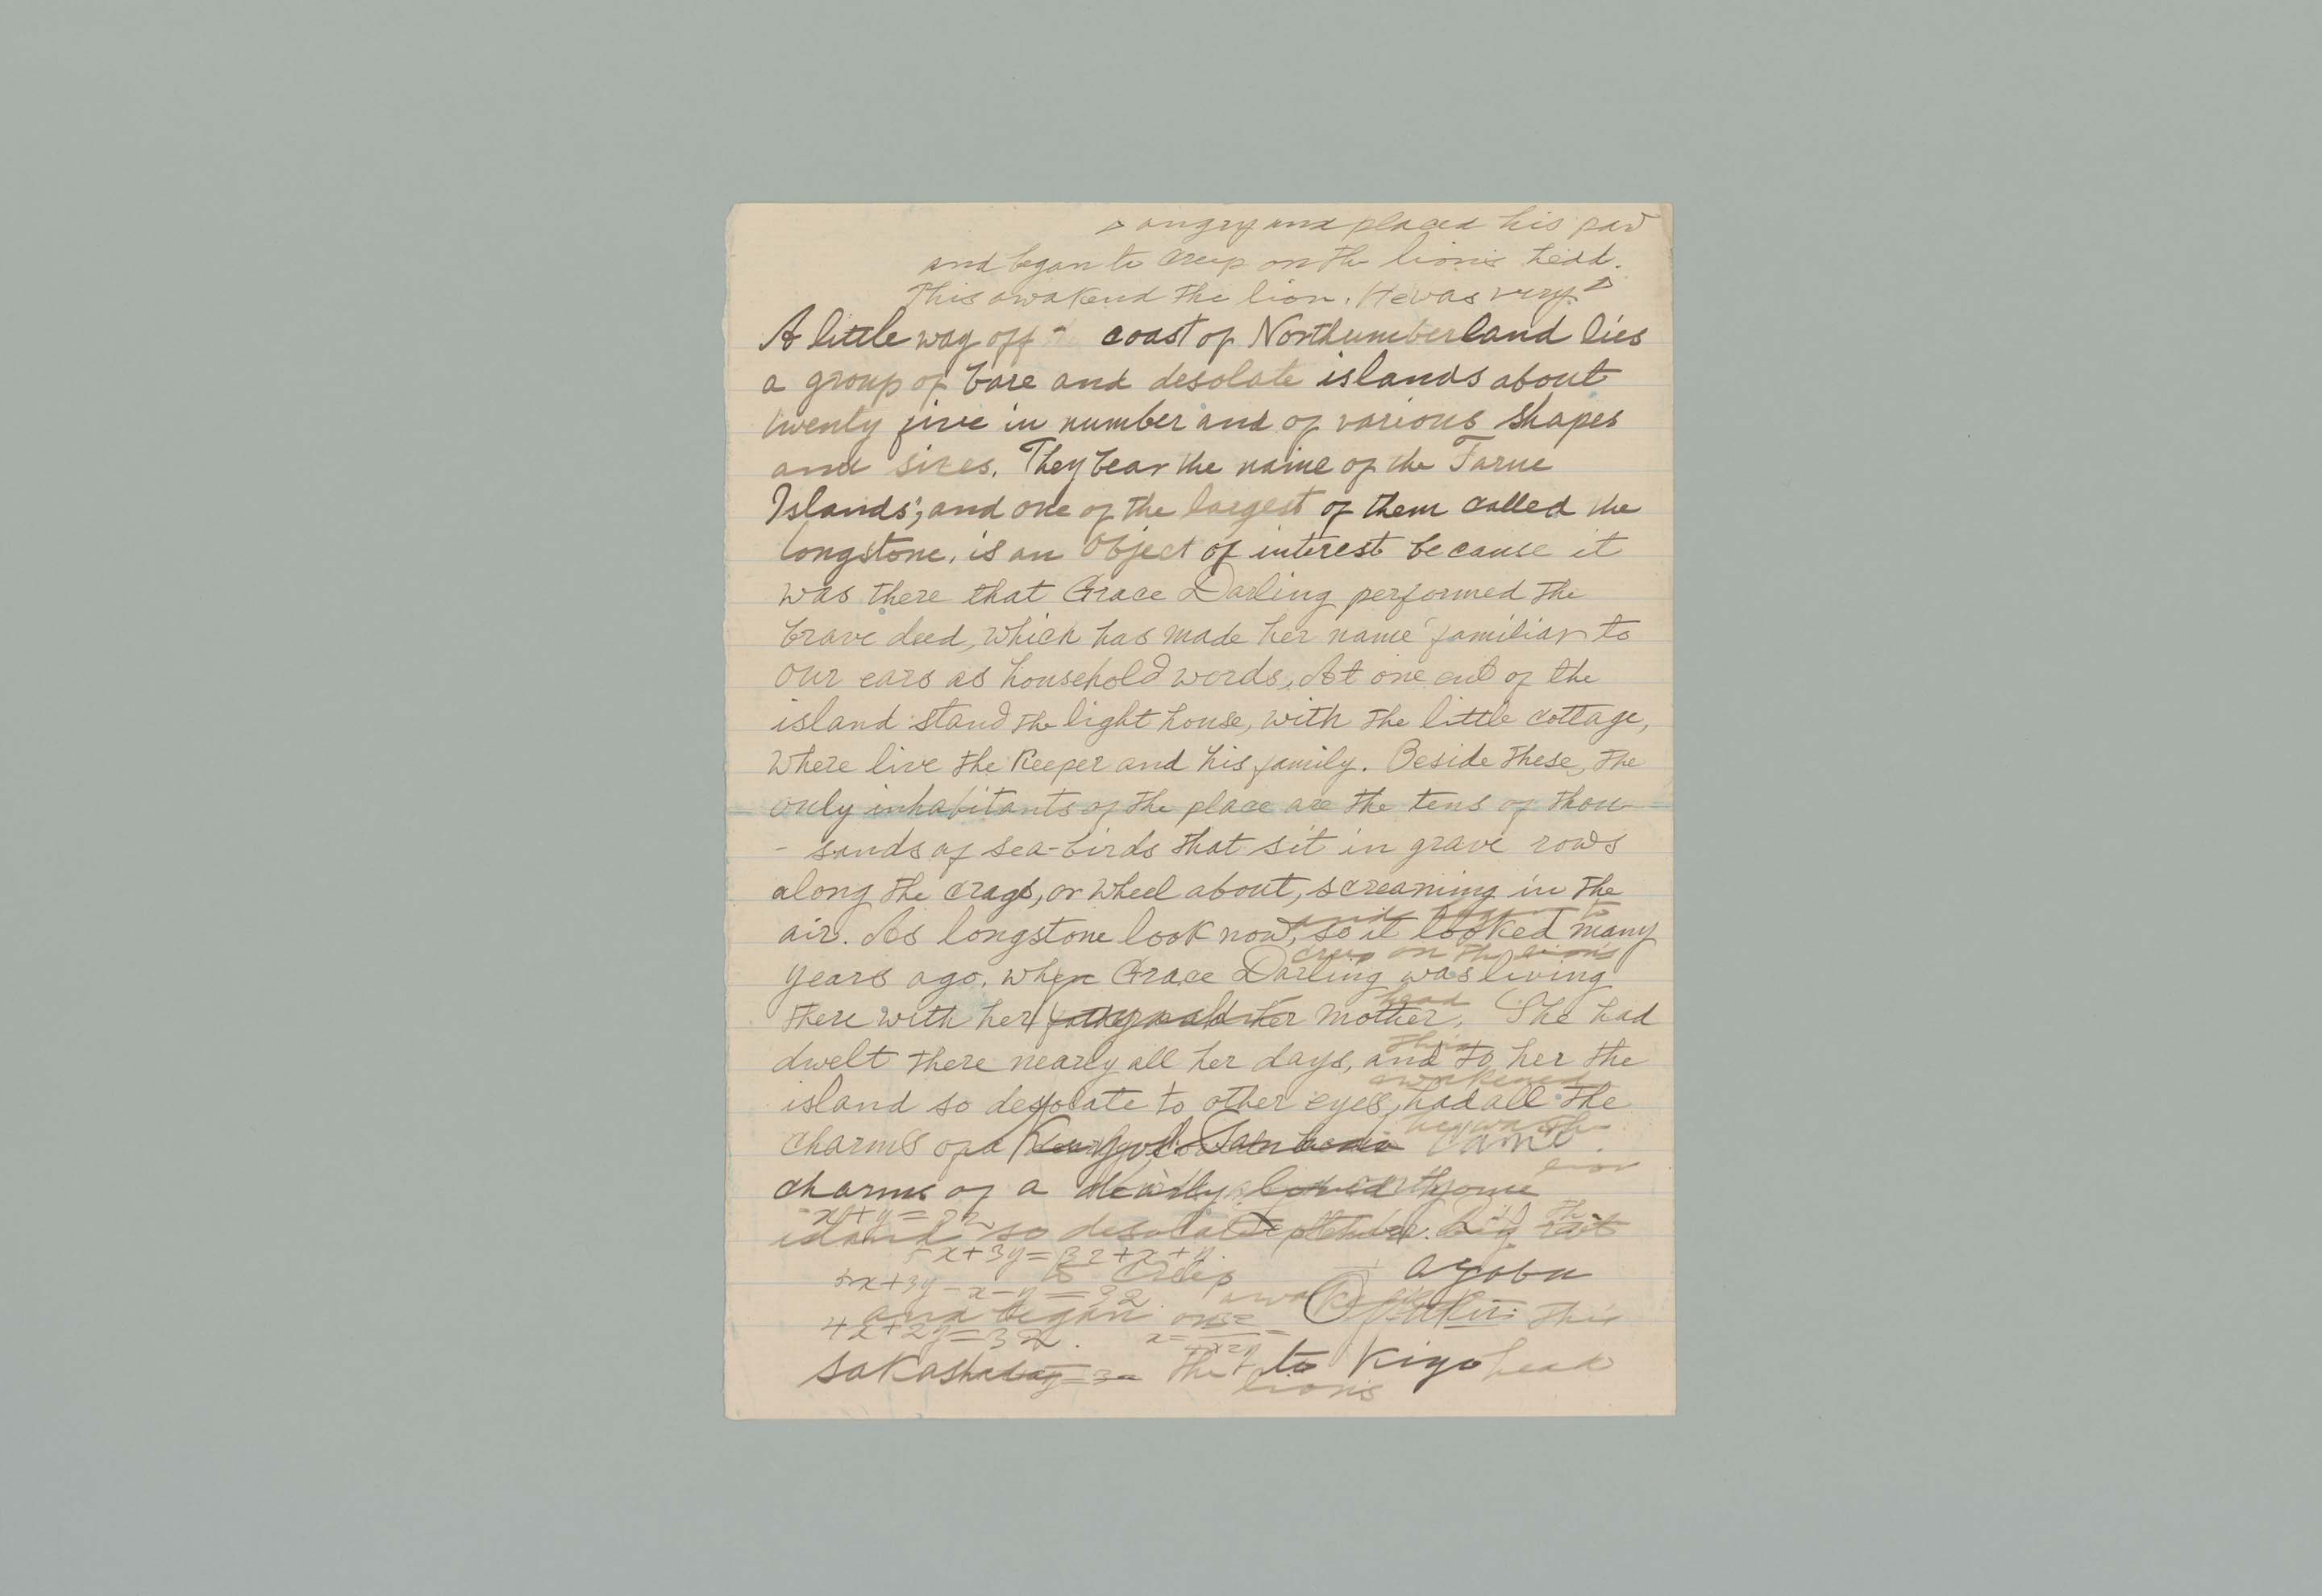 angry and placed his paw
and began to creep on the lion's head.
This awakend the lion. He was very
A little way off coast of Northumberland lies
a group of bare and desolate islands about
twenty five in number and of various shapes
and sizes. They bear the name of the Farne
Islands; and one of the largest of them called the
longstone, is an object of interest because it
was there that Grace Darling performed the
brave deed, which has made her name familiar to
our ears as household words, At one end of the
island stand the light house, with the little cottage,
where live the keeper and his family. Beside these, the
only inhabitants of the place are the tens of thou
- sands of sea-birds that sit in grave rows
along the crags, or wheel about, screaming in the
air. As longstone look now, so it looked many
and began to
years ago, when Grace Darling was living
creep on the lion's
there with her mother. She had
head
dwelt there nearly all her days, and to her the
This
island so desolate to other eyes, had all the
awakened
charms of a
he was
charms of a dearly loved home
lion
x+y=32
island so desolate big rat
5x+3y=32+x+y.
to creep ayobu
5x+3y-x-y=32.
and began This
4x+2y=32.
sakashita the to Kiyo head
lion's